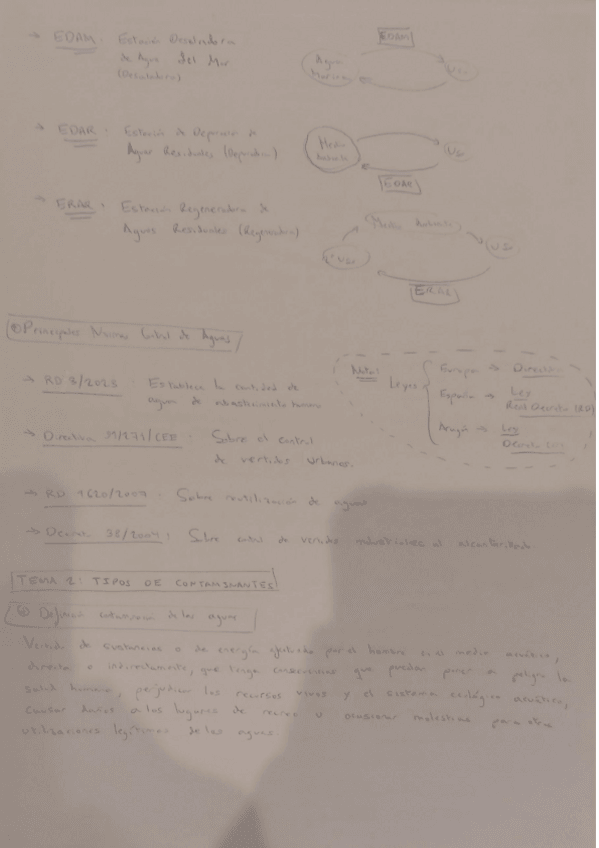 → EDAM: Estación Desaladora
de Agua del Mar
(Desaladora)
EDAM
Agua
Marina
Uso
→ EDAR: Estación de Depuración de
Aguas Residuales (Depuradora)
Medio
Natural
Uso
EDAR
→ ERAR: Estación Regeneradora de
Aguas Residuales (Regeneradora)
Medio Natural
Uso
Uso
ERAR
Principales Normas Control de Aguas
→ RD 3/2023: Establece la cantidad de
agua de abastecimiento humano
Nota:
Leyes
Europa → Directiva
España → Ley
Real Decreto (RD)
Aragón → Ley
Decreto
→ Directiva 91/271/CEE: Sobre el control
de vertidos Urbanos.
→ RD 1620/2007: Sobre reutilización de aguas
→ Decreto 38/2004: Sobre control de vertidos industriales al alcantarillado
TEMA 2: TIPOS DE CONTAMINANTES
Definición contaminación de las aguas
Vertido de sustancias o de energía efectuado por el hombre en el medio acuático,
directa o indirectamente, que tenga consecuencias que puedan poner en peligro la
salud humana, perjudicar los recursos vivos y el sistema ecológico acuático,
causar daños a los lugares de recreo u ocasionar molestias para otras
utilizaciones legítimas de las aguas.